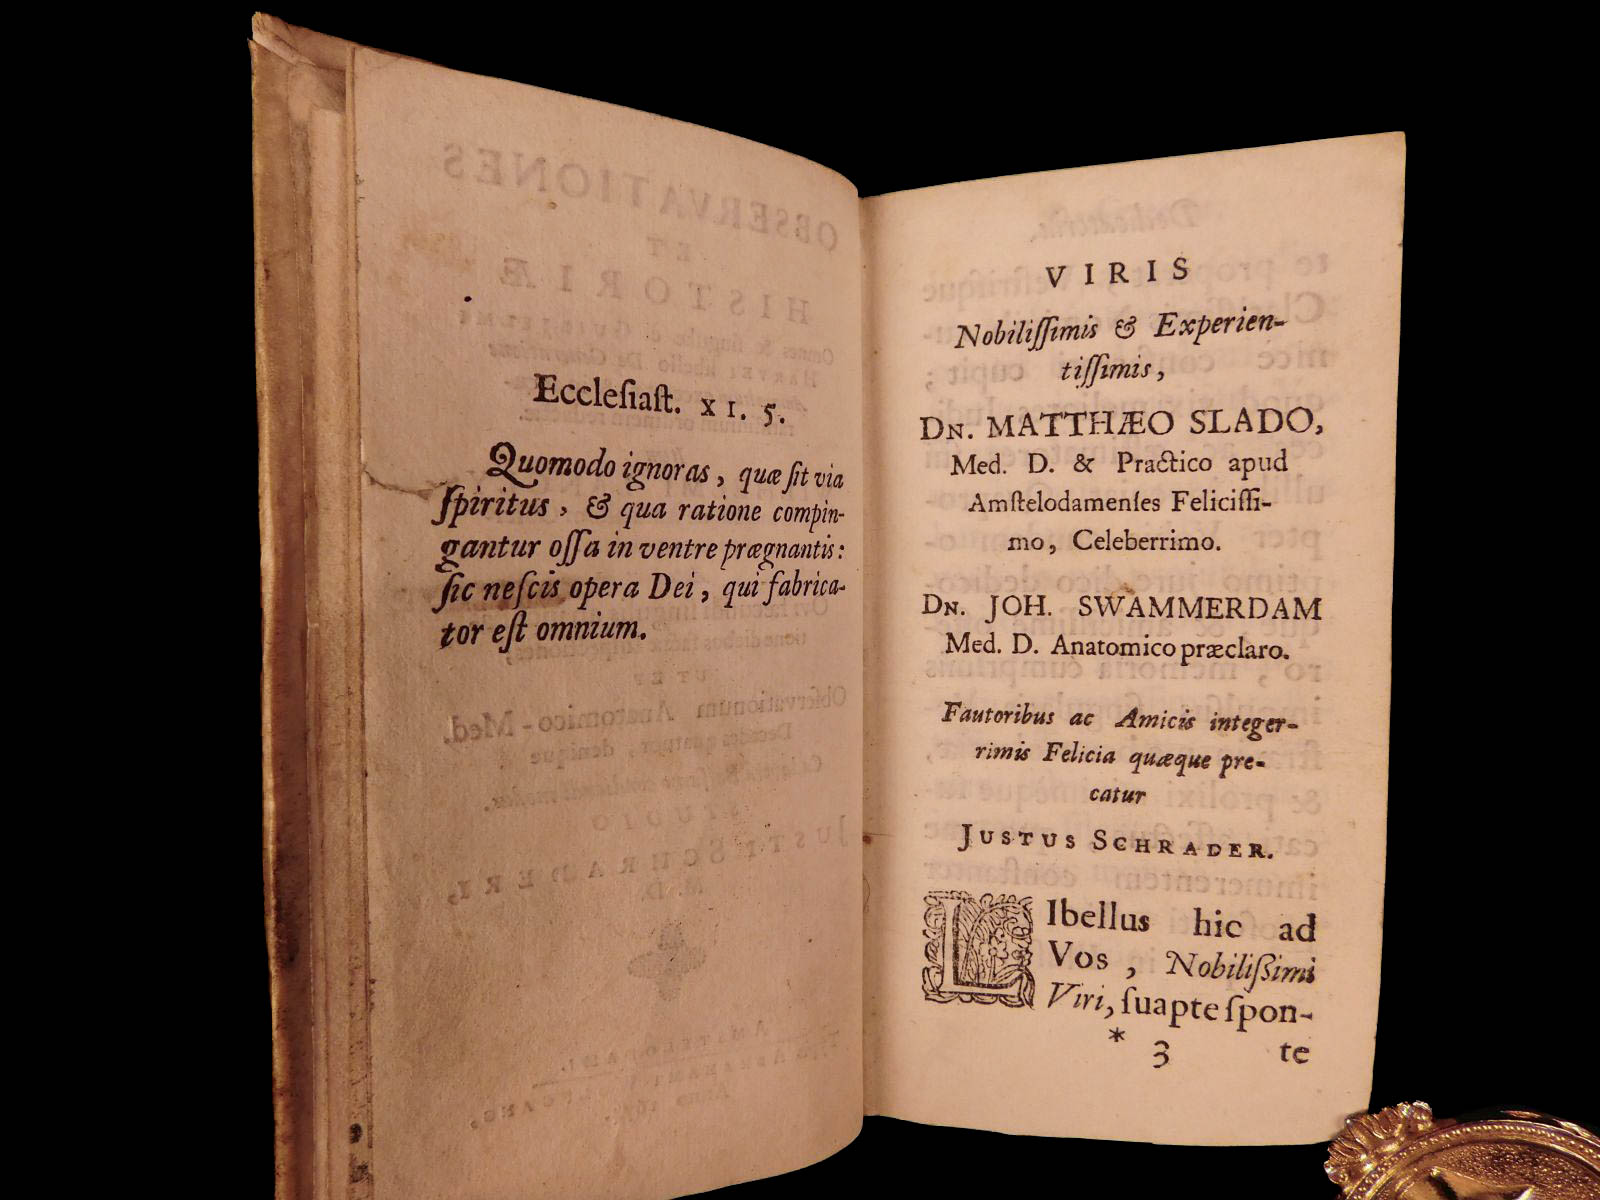 Eccleſiaſt. XI. 5.
Quomodo ignoras, quæ ſit via
ſpiritus, & qua ratione compin-
gantur oſſa in ventre prægnantis:
ſic neſcis opera Dei, qui fabrica-
tor eſt omnium.
VIRIS
Nobiliſſimis & Experien-
tiſſimis,
DN. MATTHÆO SLADO,
Med. D. & Practico apud
Amſtelodamenſes Feliciſſi-
mo, Celeberrimo.
DN. JOH. SWAMMERDAM
Med. D. Anatomico præclaro.
Fautoribus ac Amicis integer-
rimis Felicia quæque pre-
catur
JUSTUS SCHRADER.
LIbellus hic ad
Vos, Nobiliſſimi
Viri, ſuapte ſpon-
* 3 te